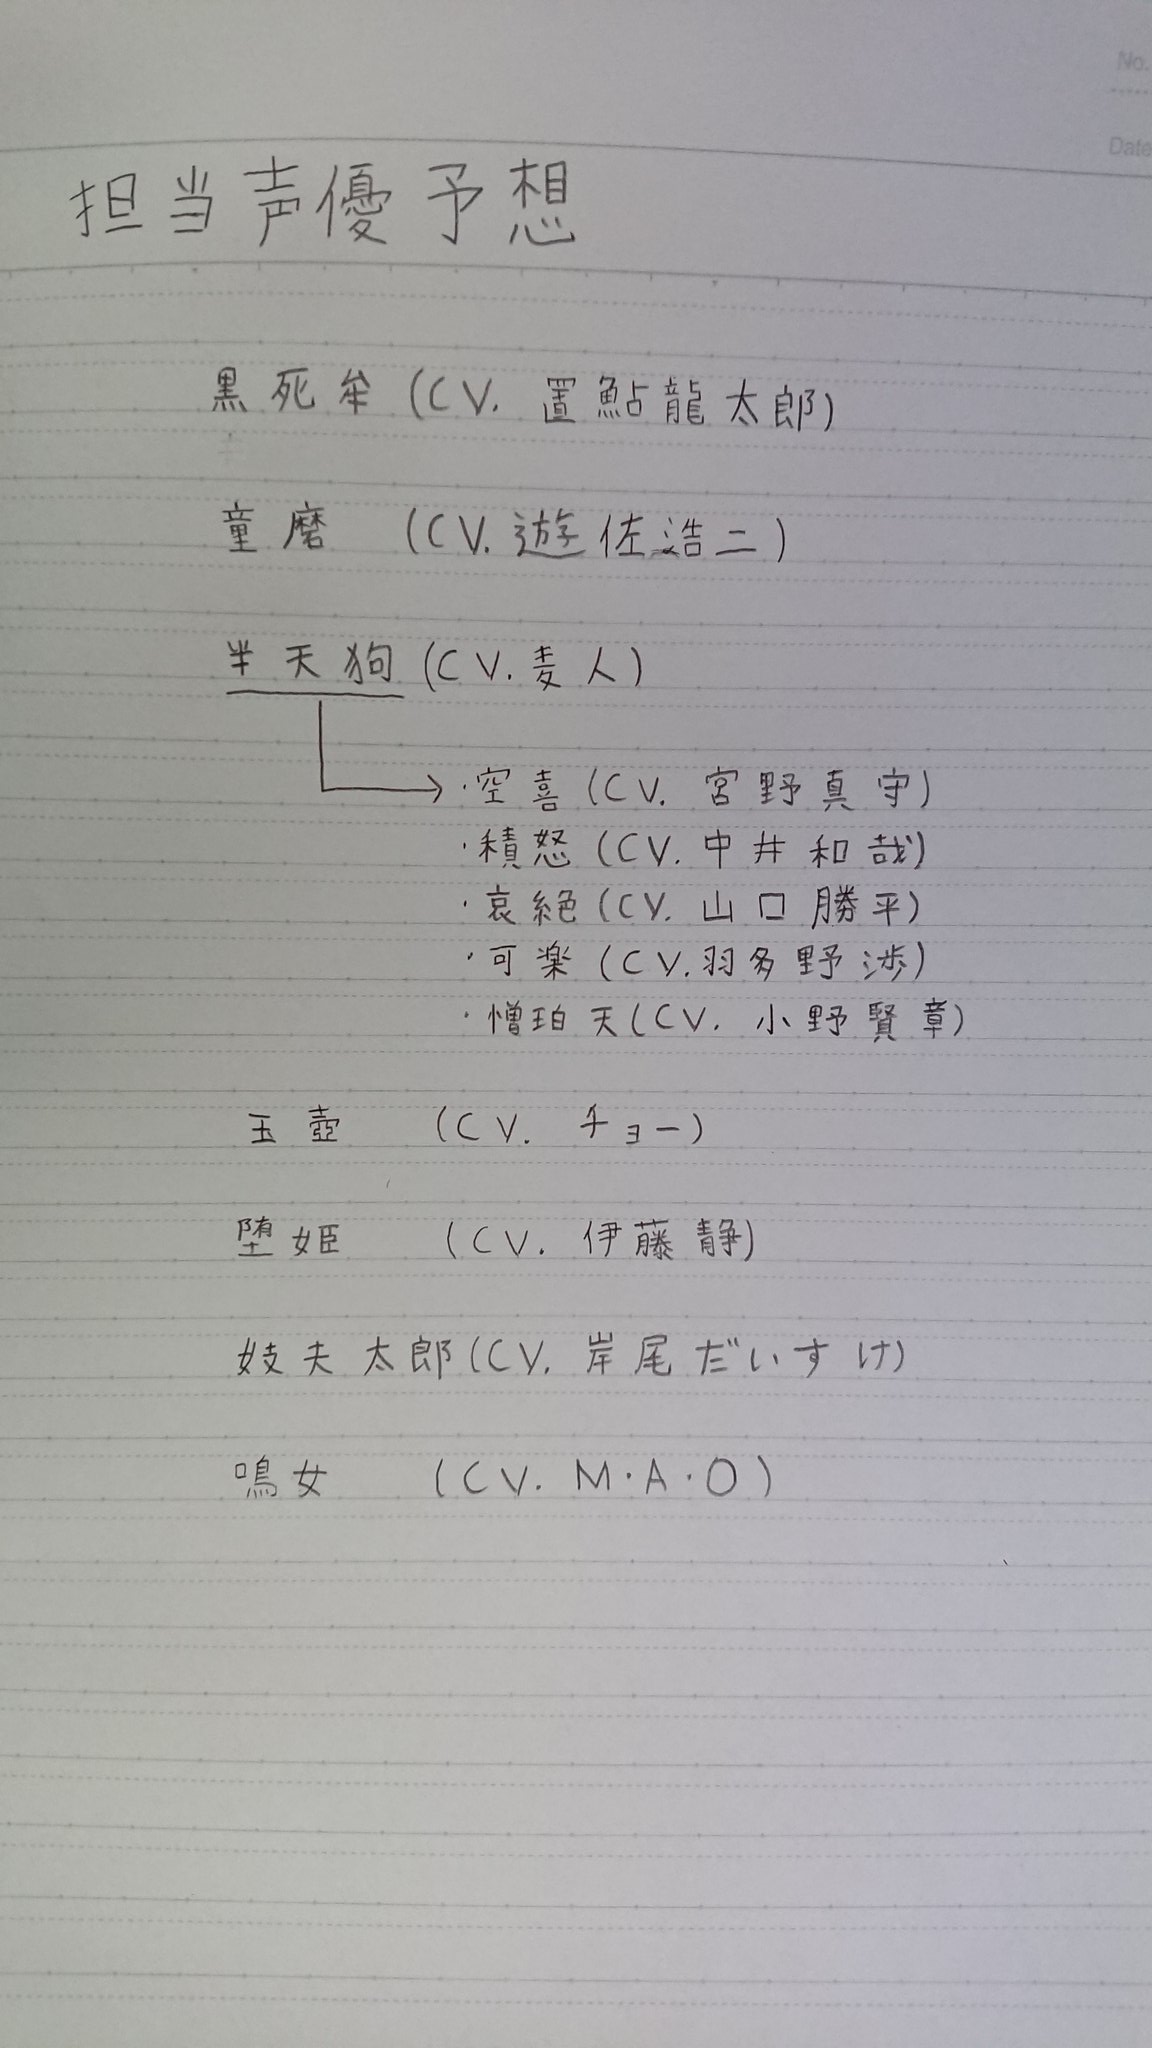 No.
Date
担当声優予想
黒死牟(CV. 置鮎龍太郎)
童磨 (CV. 遊佐浩二)
半天狗(CV. 麦人)
・空喜(CV. 宮野真守)
・積怒(CV. 中井和哉)
・哀絶(CV. 山口勝平)
・可楽(CV. 羽多野渉)
・憎珀天(CV. 小野賢章)
玉壺 (CV. チョー)
堕姫 (CV. 伊藤静)
妓夫太郎(CV. 岸尾だいすけ)
鳴女 (CV. M・A・O)